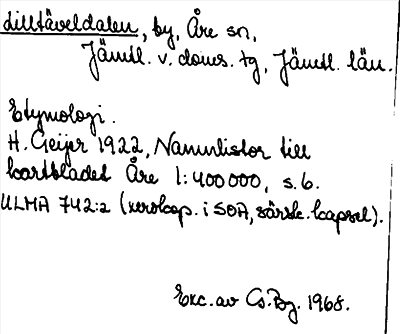 Lilltäveldalen, by, Åre sn,
Jämtl. v. doms. tg, Jämtl. län.
Etymologi.
H. Geijer 1922, Namnlistor till
kartbladet Åre 1:400000, s. 6.
ULMA 742:2 (xerokop. i SOA, särsk. kapsel).
Exc. av Cs. By. 1968.